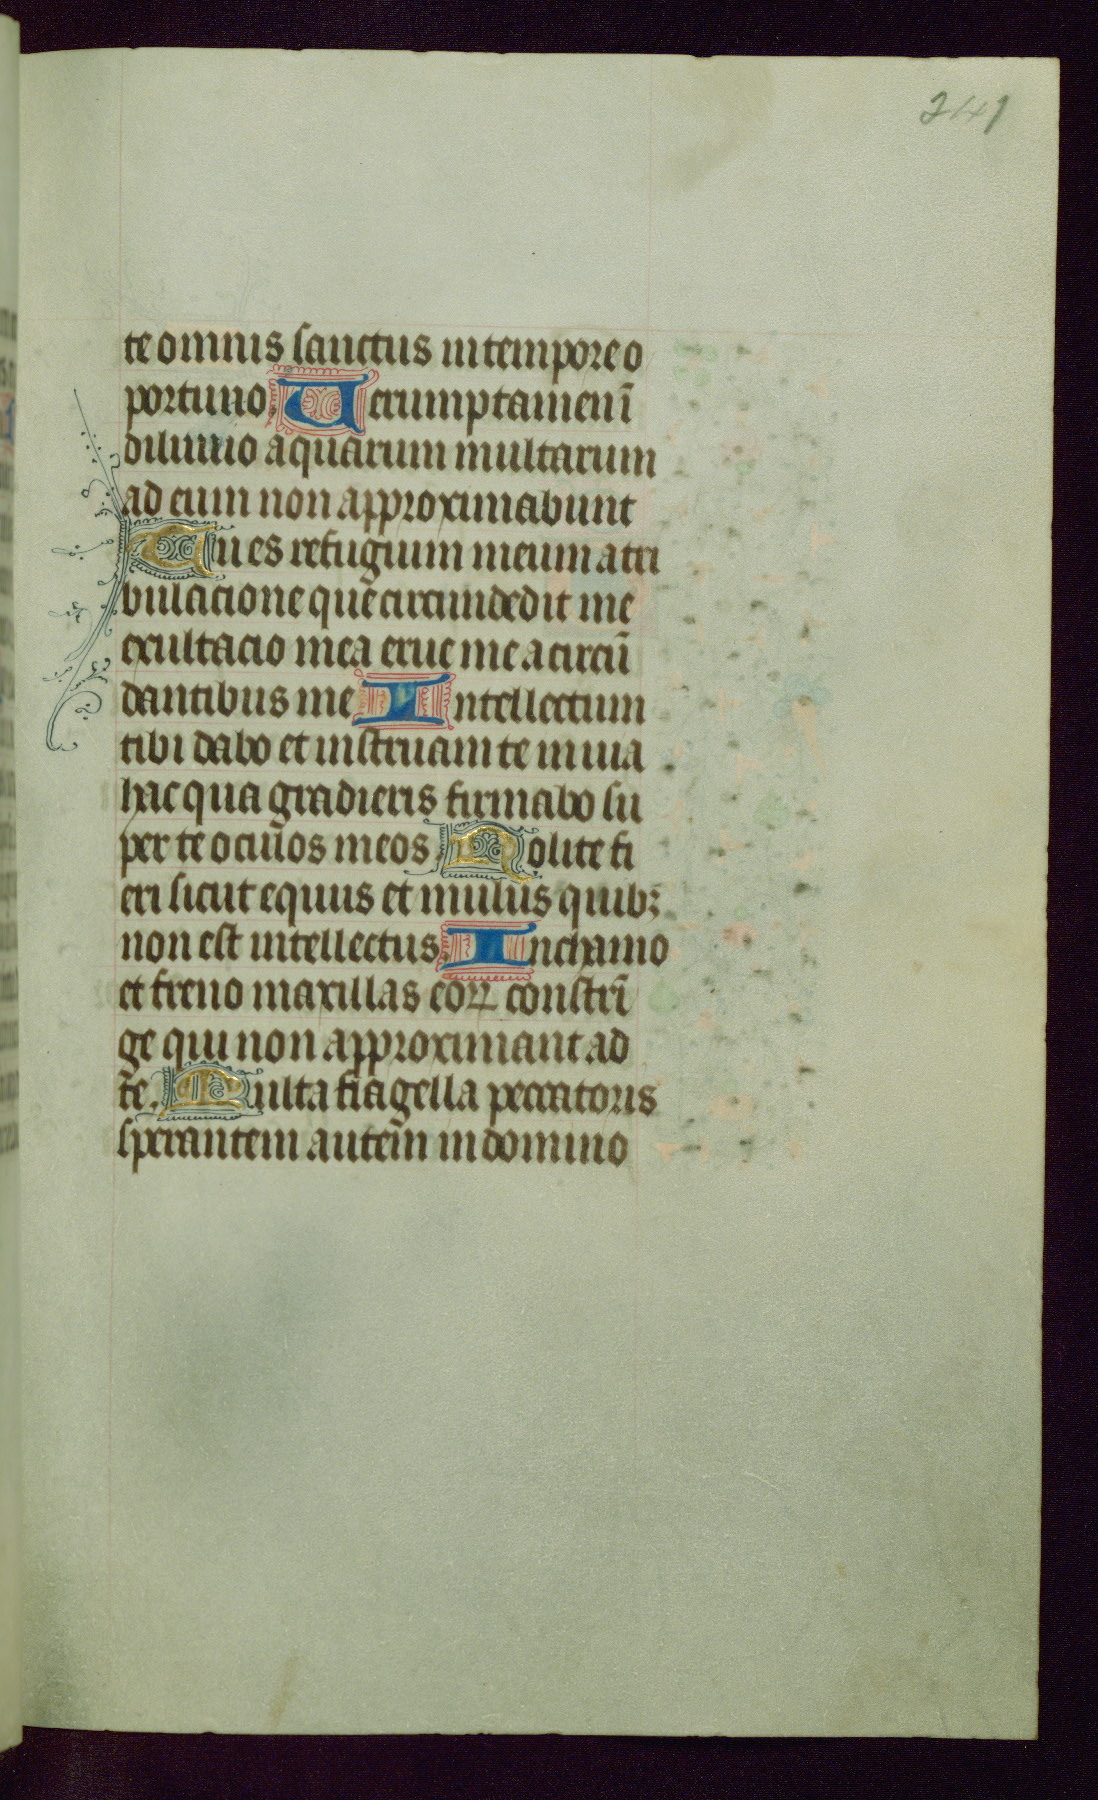 241
te omnis sanctus in tempore o
portuno. Uerumptamen ī
diluuio aquarum multarum
ad eum non approximabunt
Tu es refugium meum a tri
bulacione quē circumdedit me
exultacio mea erue me a circū
dantibus me Intellectum
tibi dabo et instruam te in uia
hac qua gradieris firmabo su
per te oculos meos. Nolite fi
eri sicut equus et mulus quibꝫ
non est intellectus. In chamo
et freno maxillas eoꝝ constrī
ge qui non approximant ad
te. Multa flagella peccatoris
sperantem autem in domino